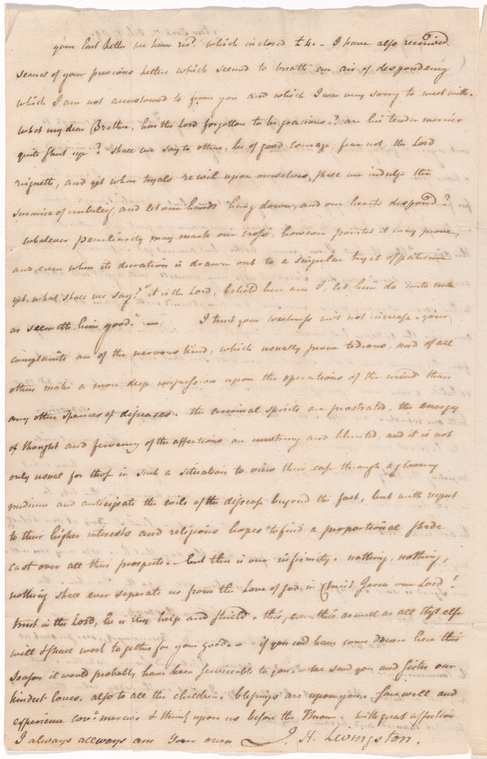 your last letter we have recd. which inclosed £4. - I have also received
several of your previous letters which seemed to breath an air of desponding
which I am not accustomed to from you and which I was very sorry to meet with.
What my dear Brother, has the Lord forgotten to be gracious? are his tender mercies
quite shut up? Shall we say to others, be of good courage, fear not, the Lord
reigneth, and yet when trials recoil upon ourselves, shall we indulge the
surmise of unbelief, and let our hands hang down, and our hearts despond?
Whatever peculiarity may mark our cross, however pointed it may prove,
and even when its duration is drawn out to a singular tryal of patience
yet what shall we say? "it is the Lord, behold here am I let him do unto me
as seemeth him good." - I trust your weakness will not increase. your
complaints are of the nervous kind, which usually prove tedious, and of all
others make a more deep impression upon the operations of the mind than
any other species of diseases. the animal spirits are prostrated, the energy
of thought and fervency of the affections are and blunted, and it is not
only usual for those in such a situation to view their case through a gloomy
medium and anticipate the evils of the disease beyond the fact, but with respect
to their higher interests and religious hopes to find a proportional shade
cast over all their prospects. but this is our infirmity. nothing, nothing,
nothing shall ever separate us from the Love of god, in Christ Jesus our Lord!
trust in the Lord, he is thy help and shield. this, even this as well as all things else
will & shall work together for your good. - if you had been come down here this
season it would probably have been serviceable to you. - we send you and sister our
kindest Loves, also to all the children. blessings are upon you. farewell and
experience mercies & think upon us before the Throne. with great affection
I always allways am Your own J. H. Livingston.